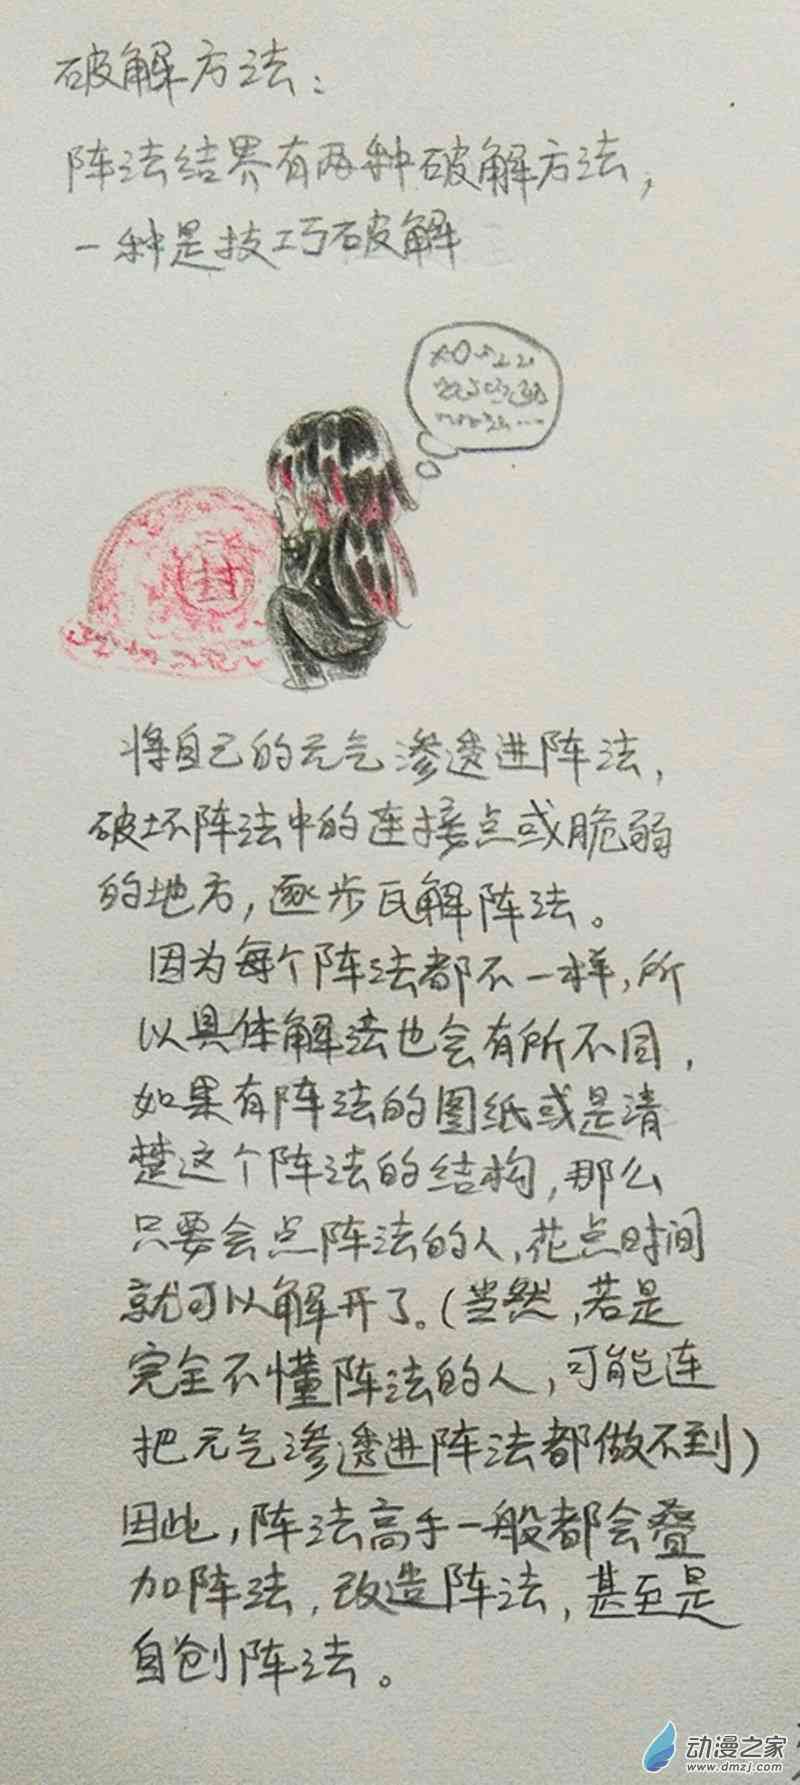 破解方法：
阵法结界有两种破解方法，
一种是技巧破解
封
将自己的元气渗透进阵法，
破坏阵法中的连接点或脆弱
的地方，逐步瓦解阵法。
因为每个阵法都不一样，所
以具体解法也会有所不同，
如果有阵法的图纸或是清
楚这个阵法的结构，那么
只要会点阵法的人，花点时间
就可以解开了。（当然，若是
完全不懂阵法的人，可能连
把元气渗透进阵法都做不到）
因此，阵法高手一般都会叠
加阵法，改造阵法，甚至是
自创阵法。
动漫之家
www.dmzj.com